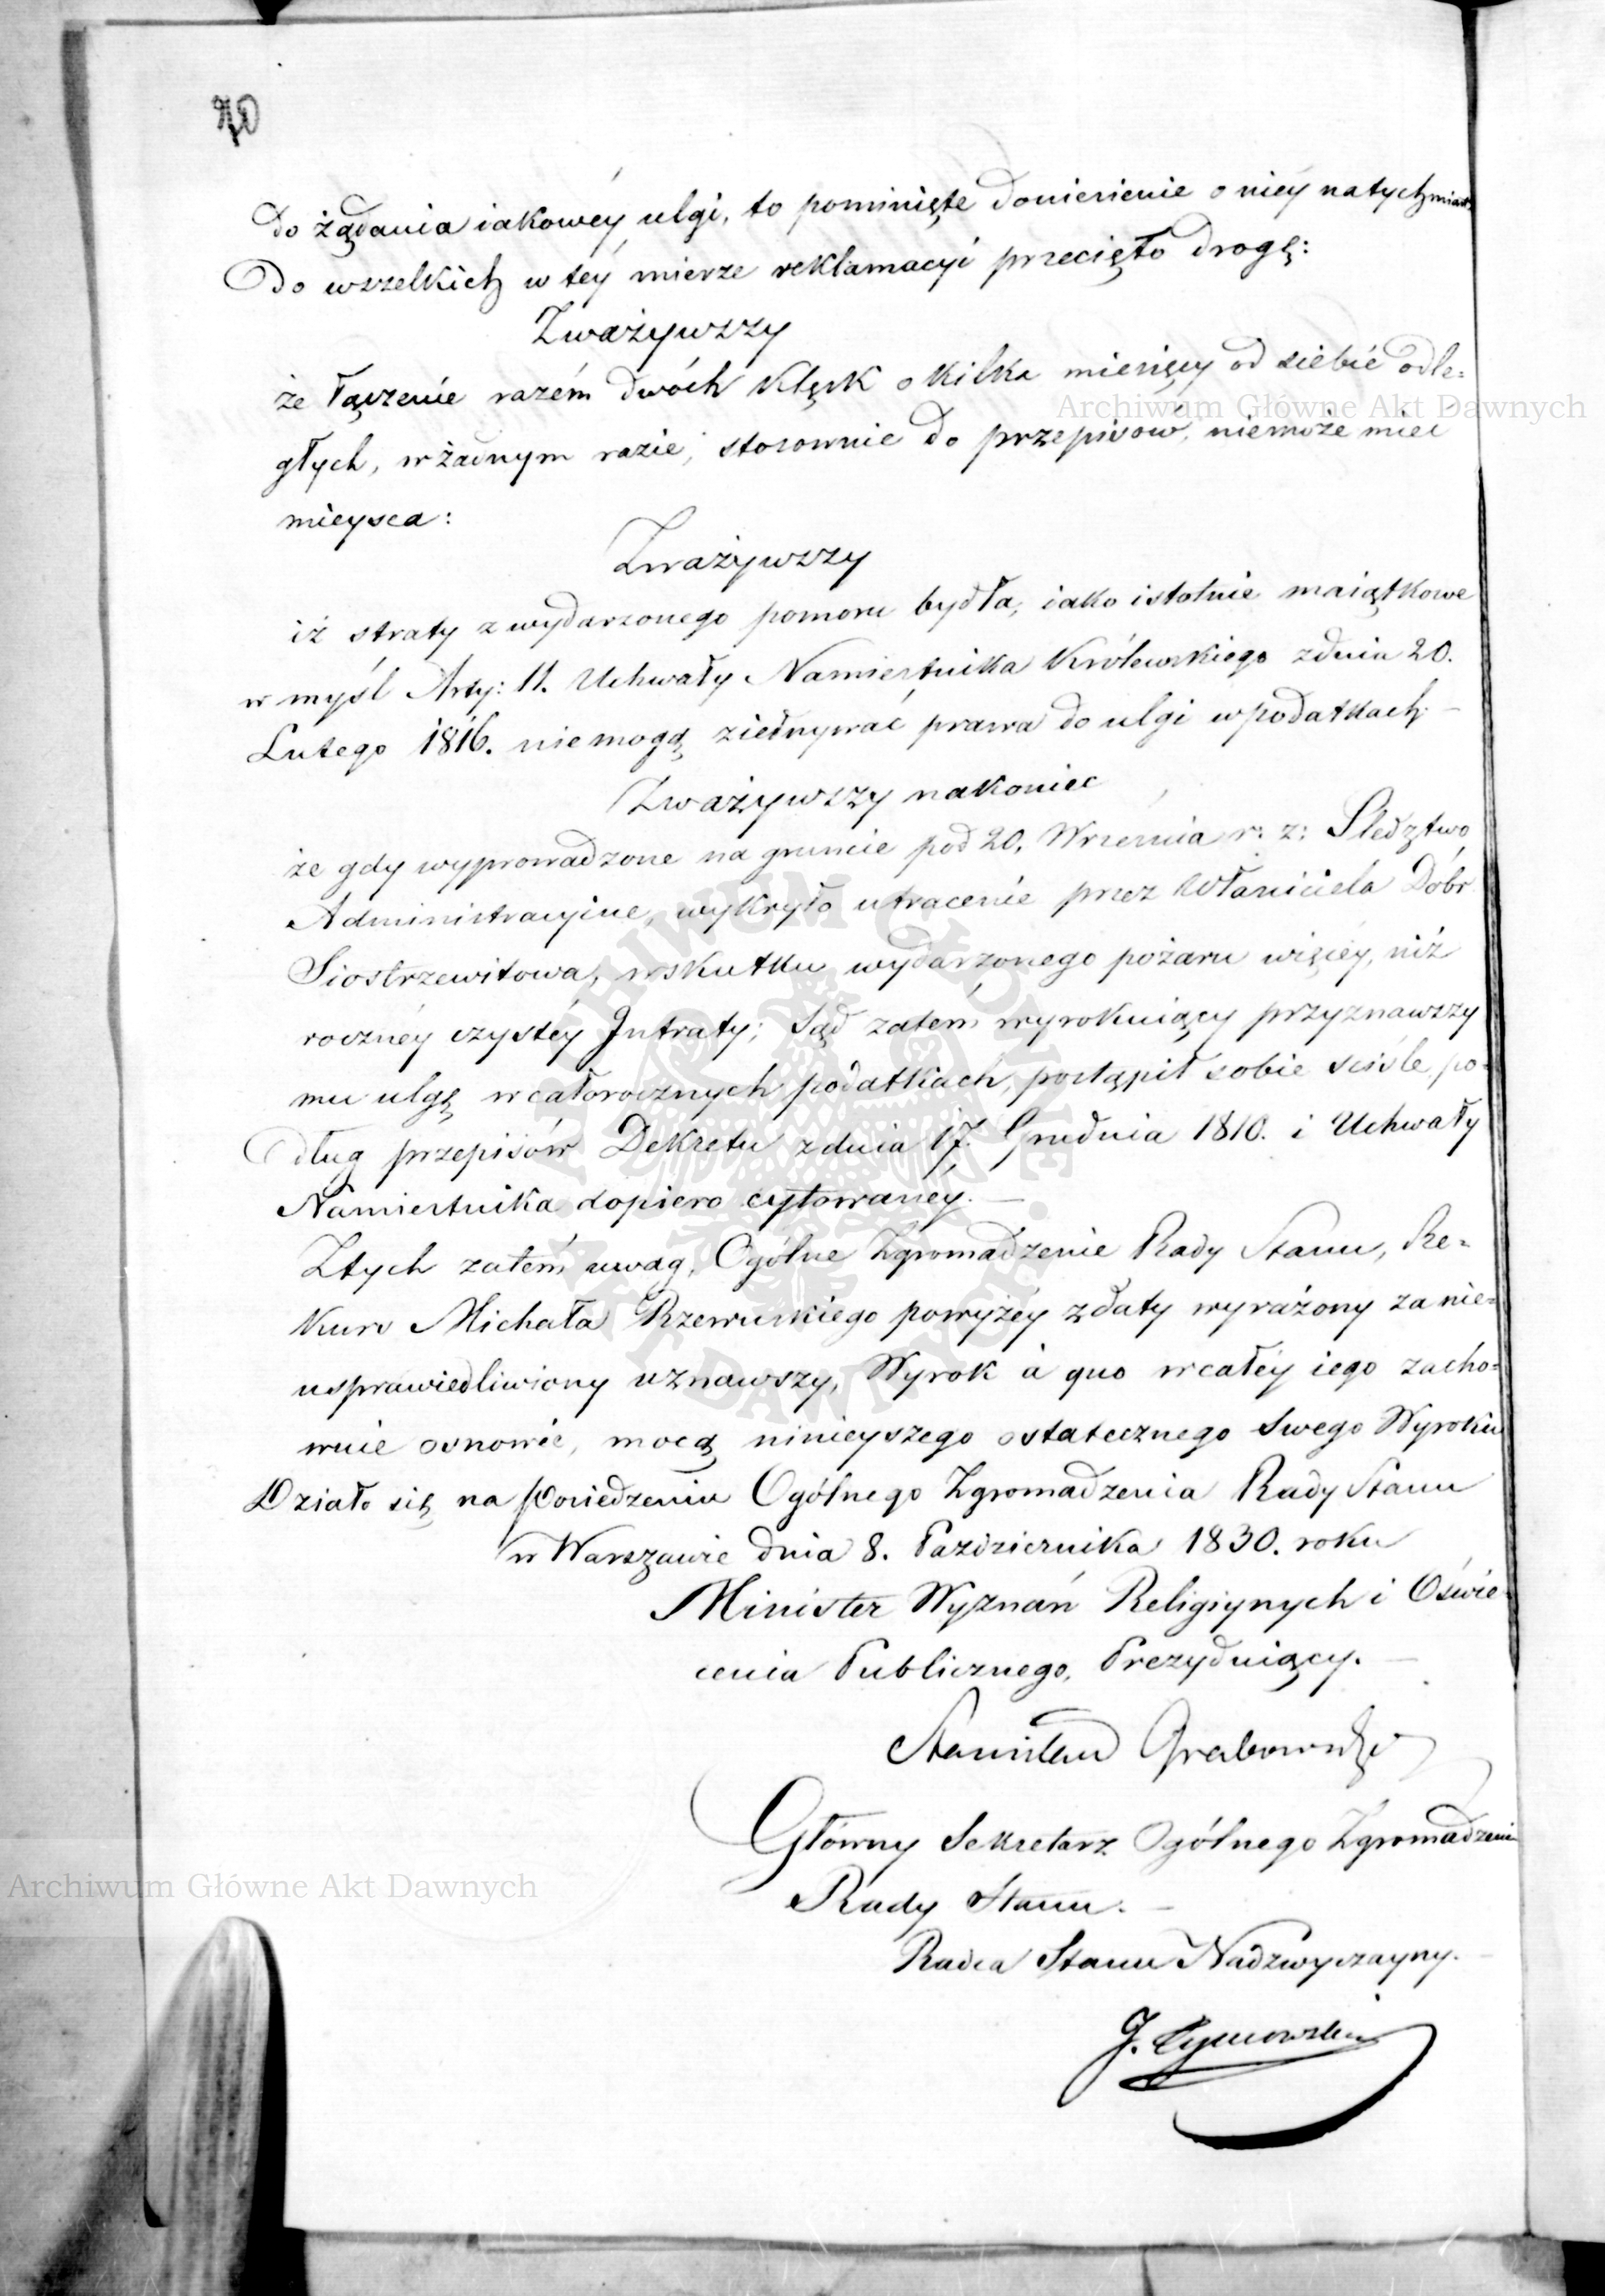 70
do żądania iakowéy ulgi, to pominięte doniesienie o niéy natychmiast
do wszelkich w téy mierze reklamacyi przecięło drogę:
Zważywszy
że łączenie razém dwóch klęsk o kilka miesięcy od siebie odle=
głych, w żadnym razie, stosownie do przepisów, niemoże mieć
mieysca:
Zważywszy
iż straty z wydarzonego pomoru bydła, iako istotnie maiątkowe
w myśl Arty: 11. Uchwały Namiestnika Królewskiego z dnia 20.
Lutego 1816. niemogą ziednywać prawa do ulgi w podatkach. –
Zważywszy nakoniec
że gdy wyprowadzone na gruncie pod 20. Września r: z: Śledztwo
Administracyine, wykryło utracenie przez Właściciela Dóbr
Siostrzewitowa, w skutku wydarzonego pożaru więcéy, niż
rocznéy czystéy Intraty; Sąd zatém wyrokuiący przyznawszy
mu ulgę w całorocznych podatkach, postąpił sobie ściśle po=
dług przepisów Dekretu z dnia 17. Grudnia 1810. i Uchwały
Namiestnika dopiero cytowanéy. –
Z tych zatém uwag, Ogólne Zgromadzenie Rady Stanu, Re=
kurs Michała Rzewuskiego powyżéy z daty wyrażony za nie=
usprawiedliwiony uznawszy, Wyrok à quo w całéy iego zacho=
wuie osnowie, mocą ninieyszego ostatecznego swego Wyroku
Działo się na Posiedzeniu Ogólnego Zgromadzenia Rady Stanu
w Warszawie dnia 8. Października 1830. roku
Minister Wyznań Religiynych i Oświe=
cenia Publicznego, Prezyduiący. –
Stanisław Grabowski
Główny Sekretarz Ogólnego Zgromadzenia
Rady Stanu. –
Radca Stanu Nadzwyczayny. –
J. Tymowski
Archiwum Główne Akt Dawnych
Archiwum Główne Akt Dawnych
ARCHIWUM GŁÓWNE AKT DAWNYCH